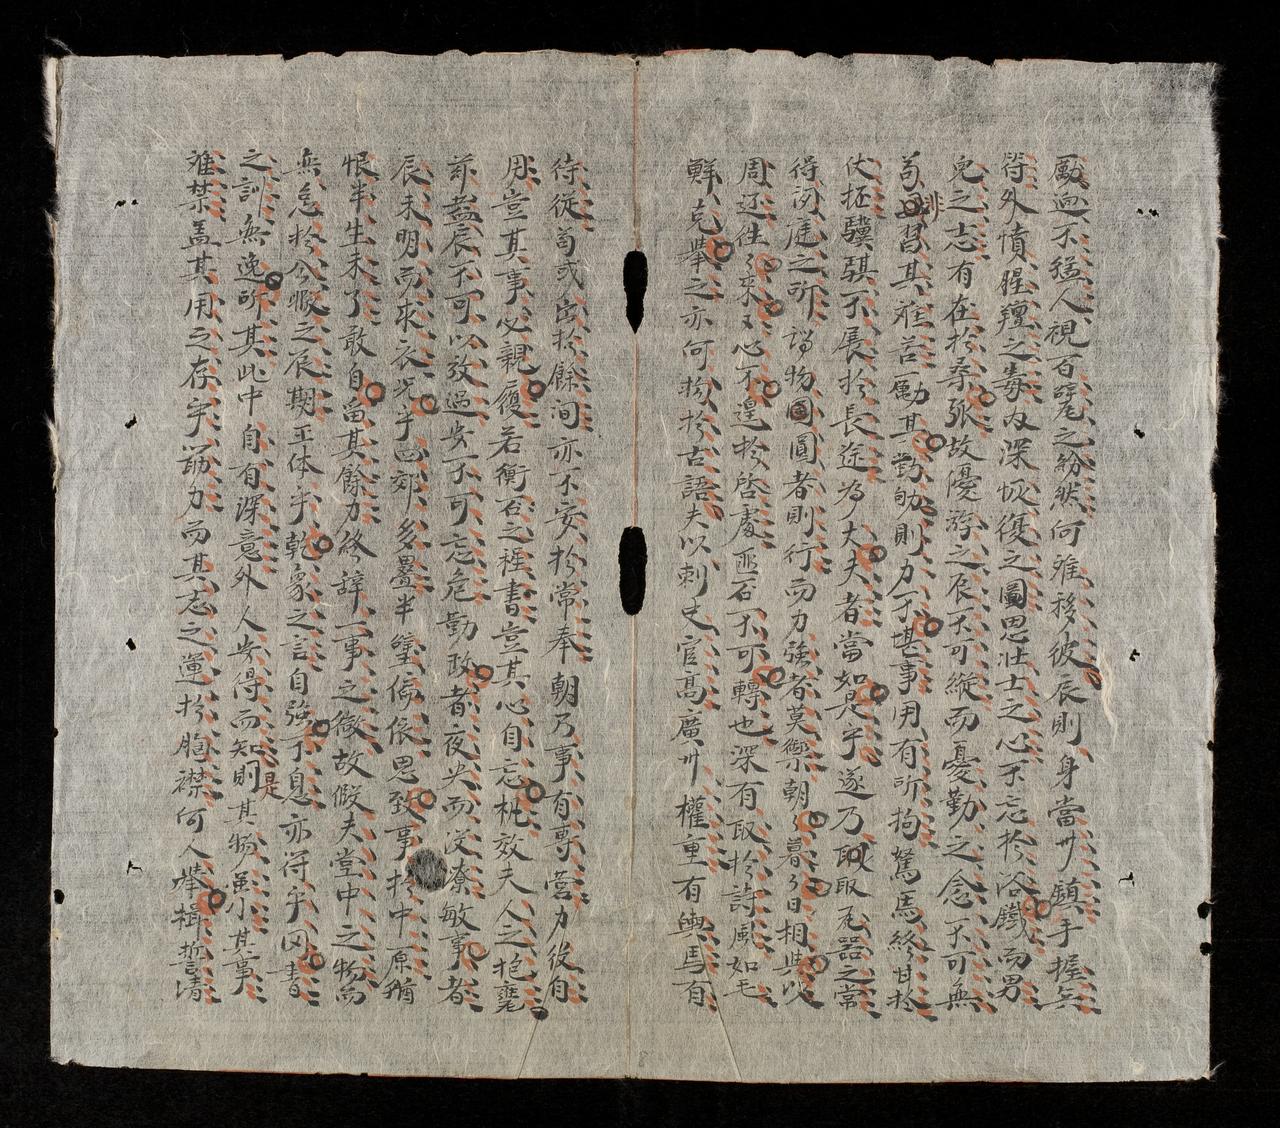 勵迥不猛人視百甓之紛然何难移彼辰則身當卅鎮手握兵
符外憤腥羶之毒内深恢復之圖思壮士之心不忘扵浴鐵而男
児之志有在扵桑弧故優游之辰不可縱而憂勤之念不可無
苟非習其难苦勵其勤劬則力不堪事用有所拘駑馬終甘扵
伏枥驥騏不展扵長途為丈夫者當如是乎遂乃取瓦器之常
得閑庭之所謁物圓者則行而力強者莫禦朝々暮々日相與以
周还往々来々心不遑扵啓處匪石不可轉也深有取扵詩風如毛
鮮克舉之亦何拘扵古語夫以刺史官高廣州權重有輿馬有
侍從苟或安扵餘洵亦不安扵常奉朝乃事有專营力役自
用豈其事必親履若衡石之程書豈其心自忘机效夫人之抱甕
葢辰不可以放過安不可忘危勤政者夜央而没療敏事者
辰未明而求衣况乎四郊多壘半壁偏依思致事扵中原猶
恨半生未了敢自當其餘力終辞一事之微故假夫堂中之物而
無怠扵今暇之辰期正体乎乾象之言自強不息亦符乎冈書
之訓無逸所其此中自有深意外人安得而知是則其物虽小其事
誰禁盖其用之存乎筋力而其志之運扵胸襟何人舉楫誓清